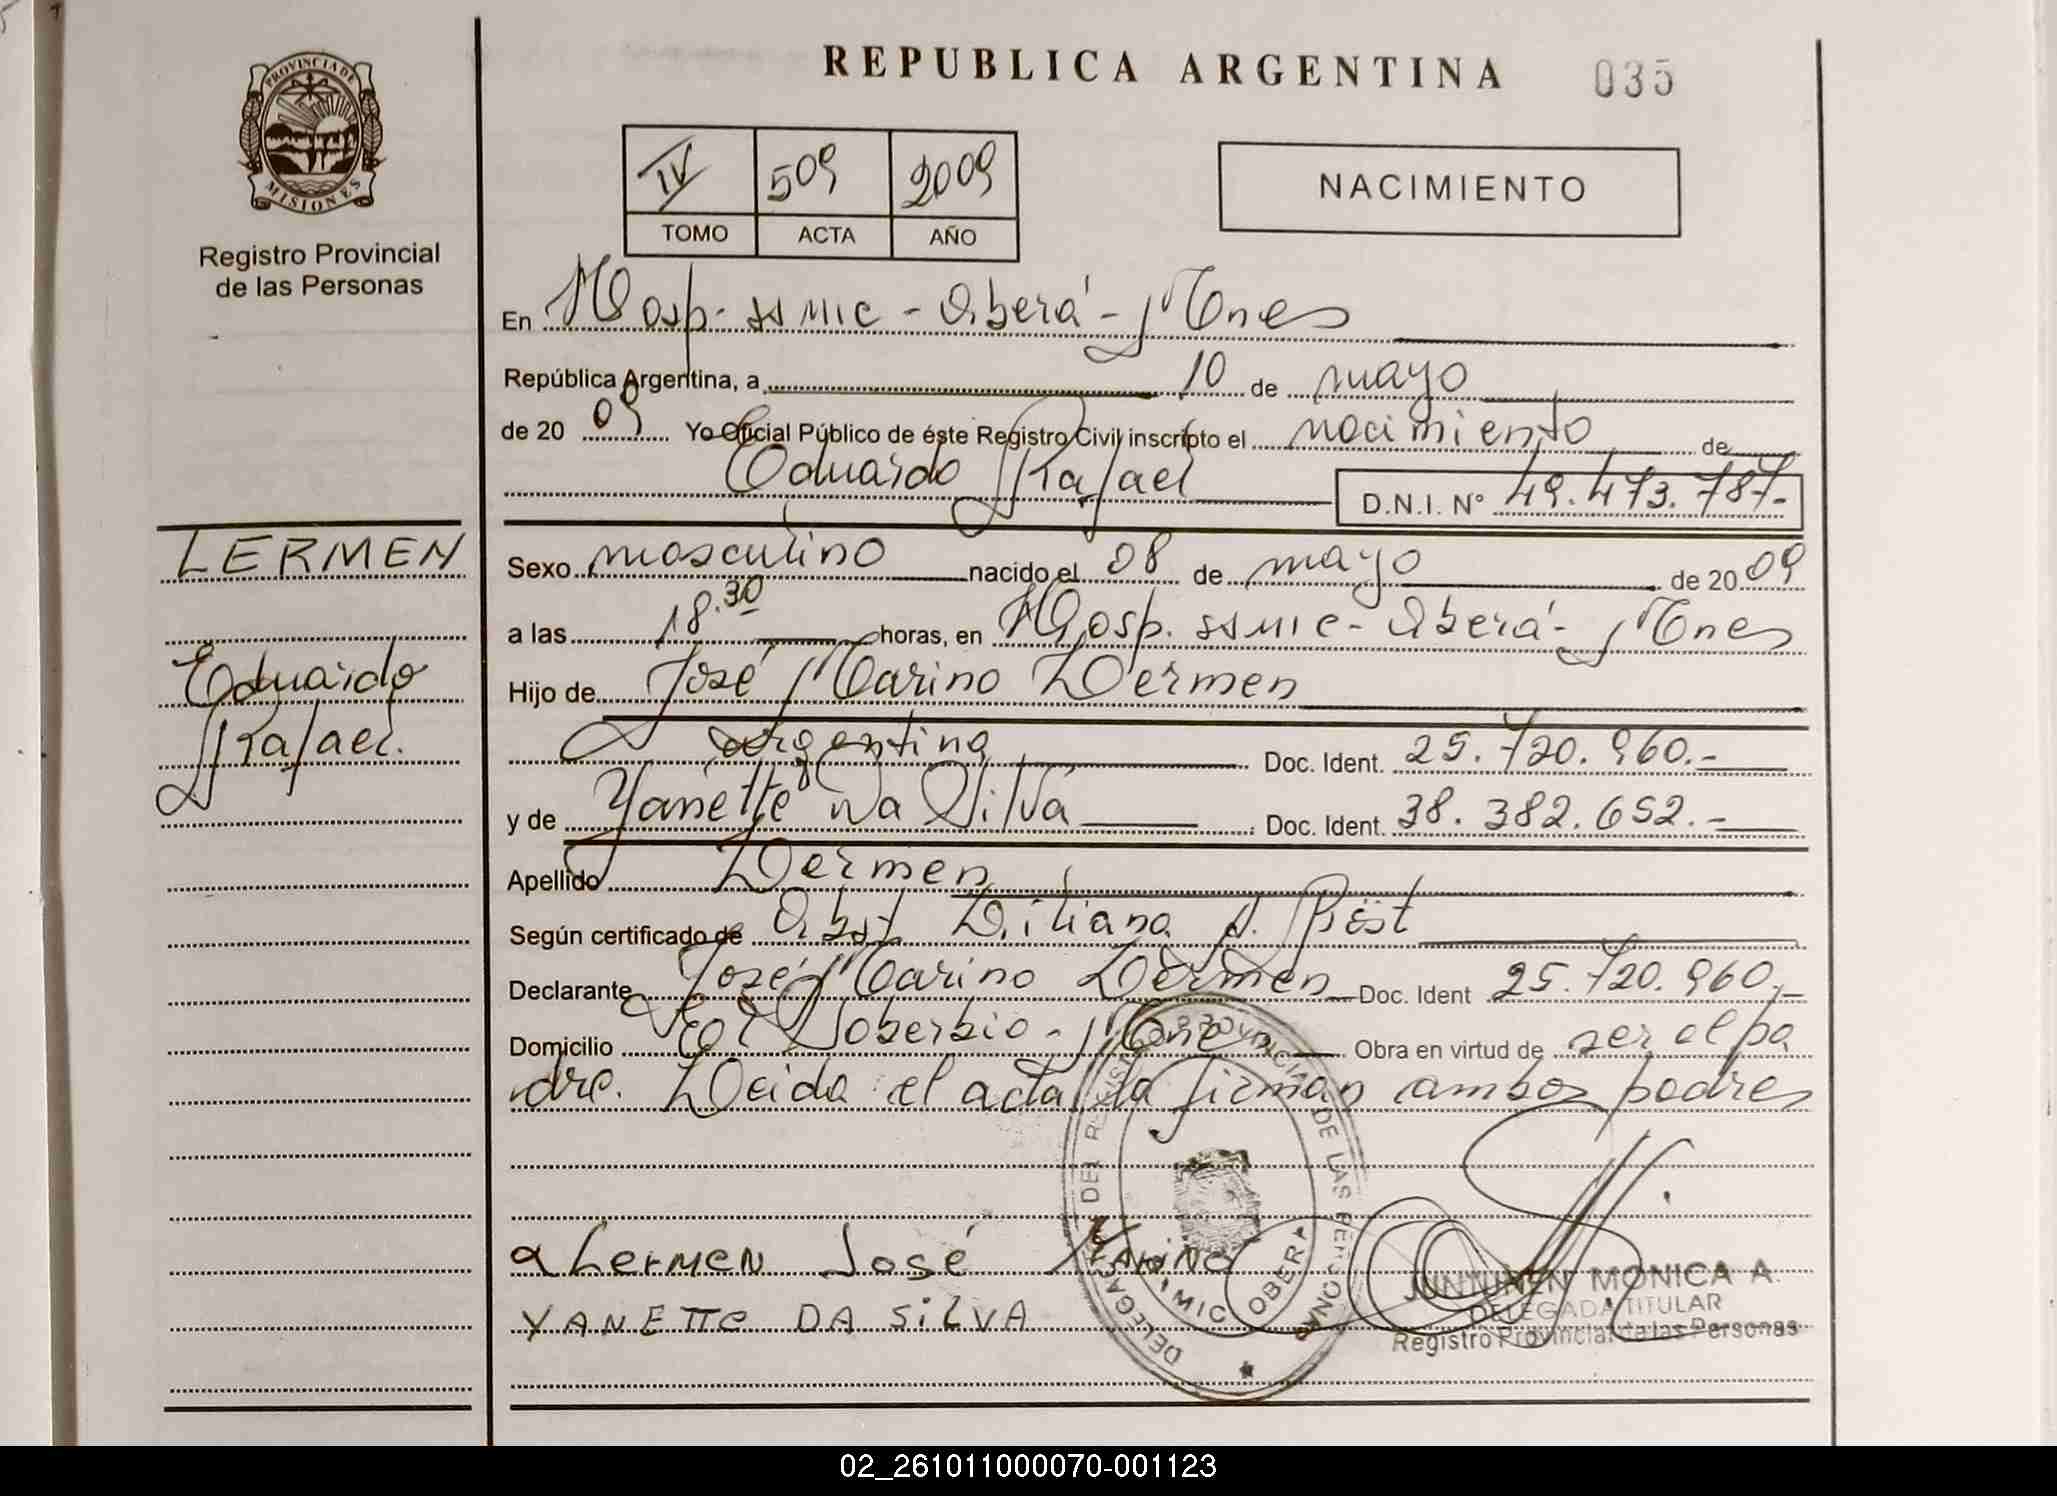 REPUBLICA ARGENTINA 035
PROVINCIA DE
MISIONES
Registro Provincial
de las Personas
IV 509 2009
TOMO ACTA AÑO
NACIMIENTO
En Hosp. SSMIC - Oberá - Mnes
República Argentina, a 10 de mayo
de 2009 Yo Oficial Público de éste Registro Civil inscripto el nacimiento de
Eduardo Rafael D.N.I. N° 49.473.787.-
LERMEN
Eduardo
Rafael.
Sexo masculino nacido el 08 de mayo de 2009
a las 18.30 horas, en Hosp. SSMIC - Oberá - Mnes
Hijo de José Marino Lermen
argentino Doc. Ident. 25.720.960.-
y de Yanette Da Silva Doc. Ident. 38.382.652.-
Apellido Lermen
Según certificado de Obst. Liliana A. Prëst
Declarante José Marino Lermen Doc. Ident 25.720.960.-
Domicilio El Soberbio - Mnes Obra en virtud de ser el pa
dre. Leida el acta la firman ambos padres
Lermen José Marino
YANETTE DA SILVA
DELEGACION DEL REGISTRO PROVINCIAL DE LAS PERSONAS
OBERA
JUNTUNEN MONICA A.
DELEGADA TITULAR
Registro Provincial de las Personas
02_261011000070-001123